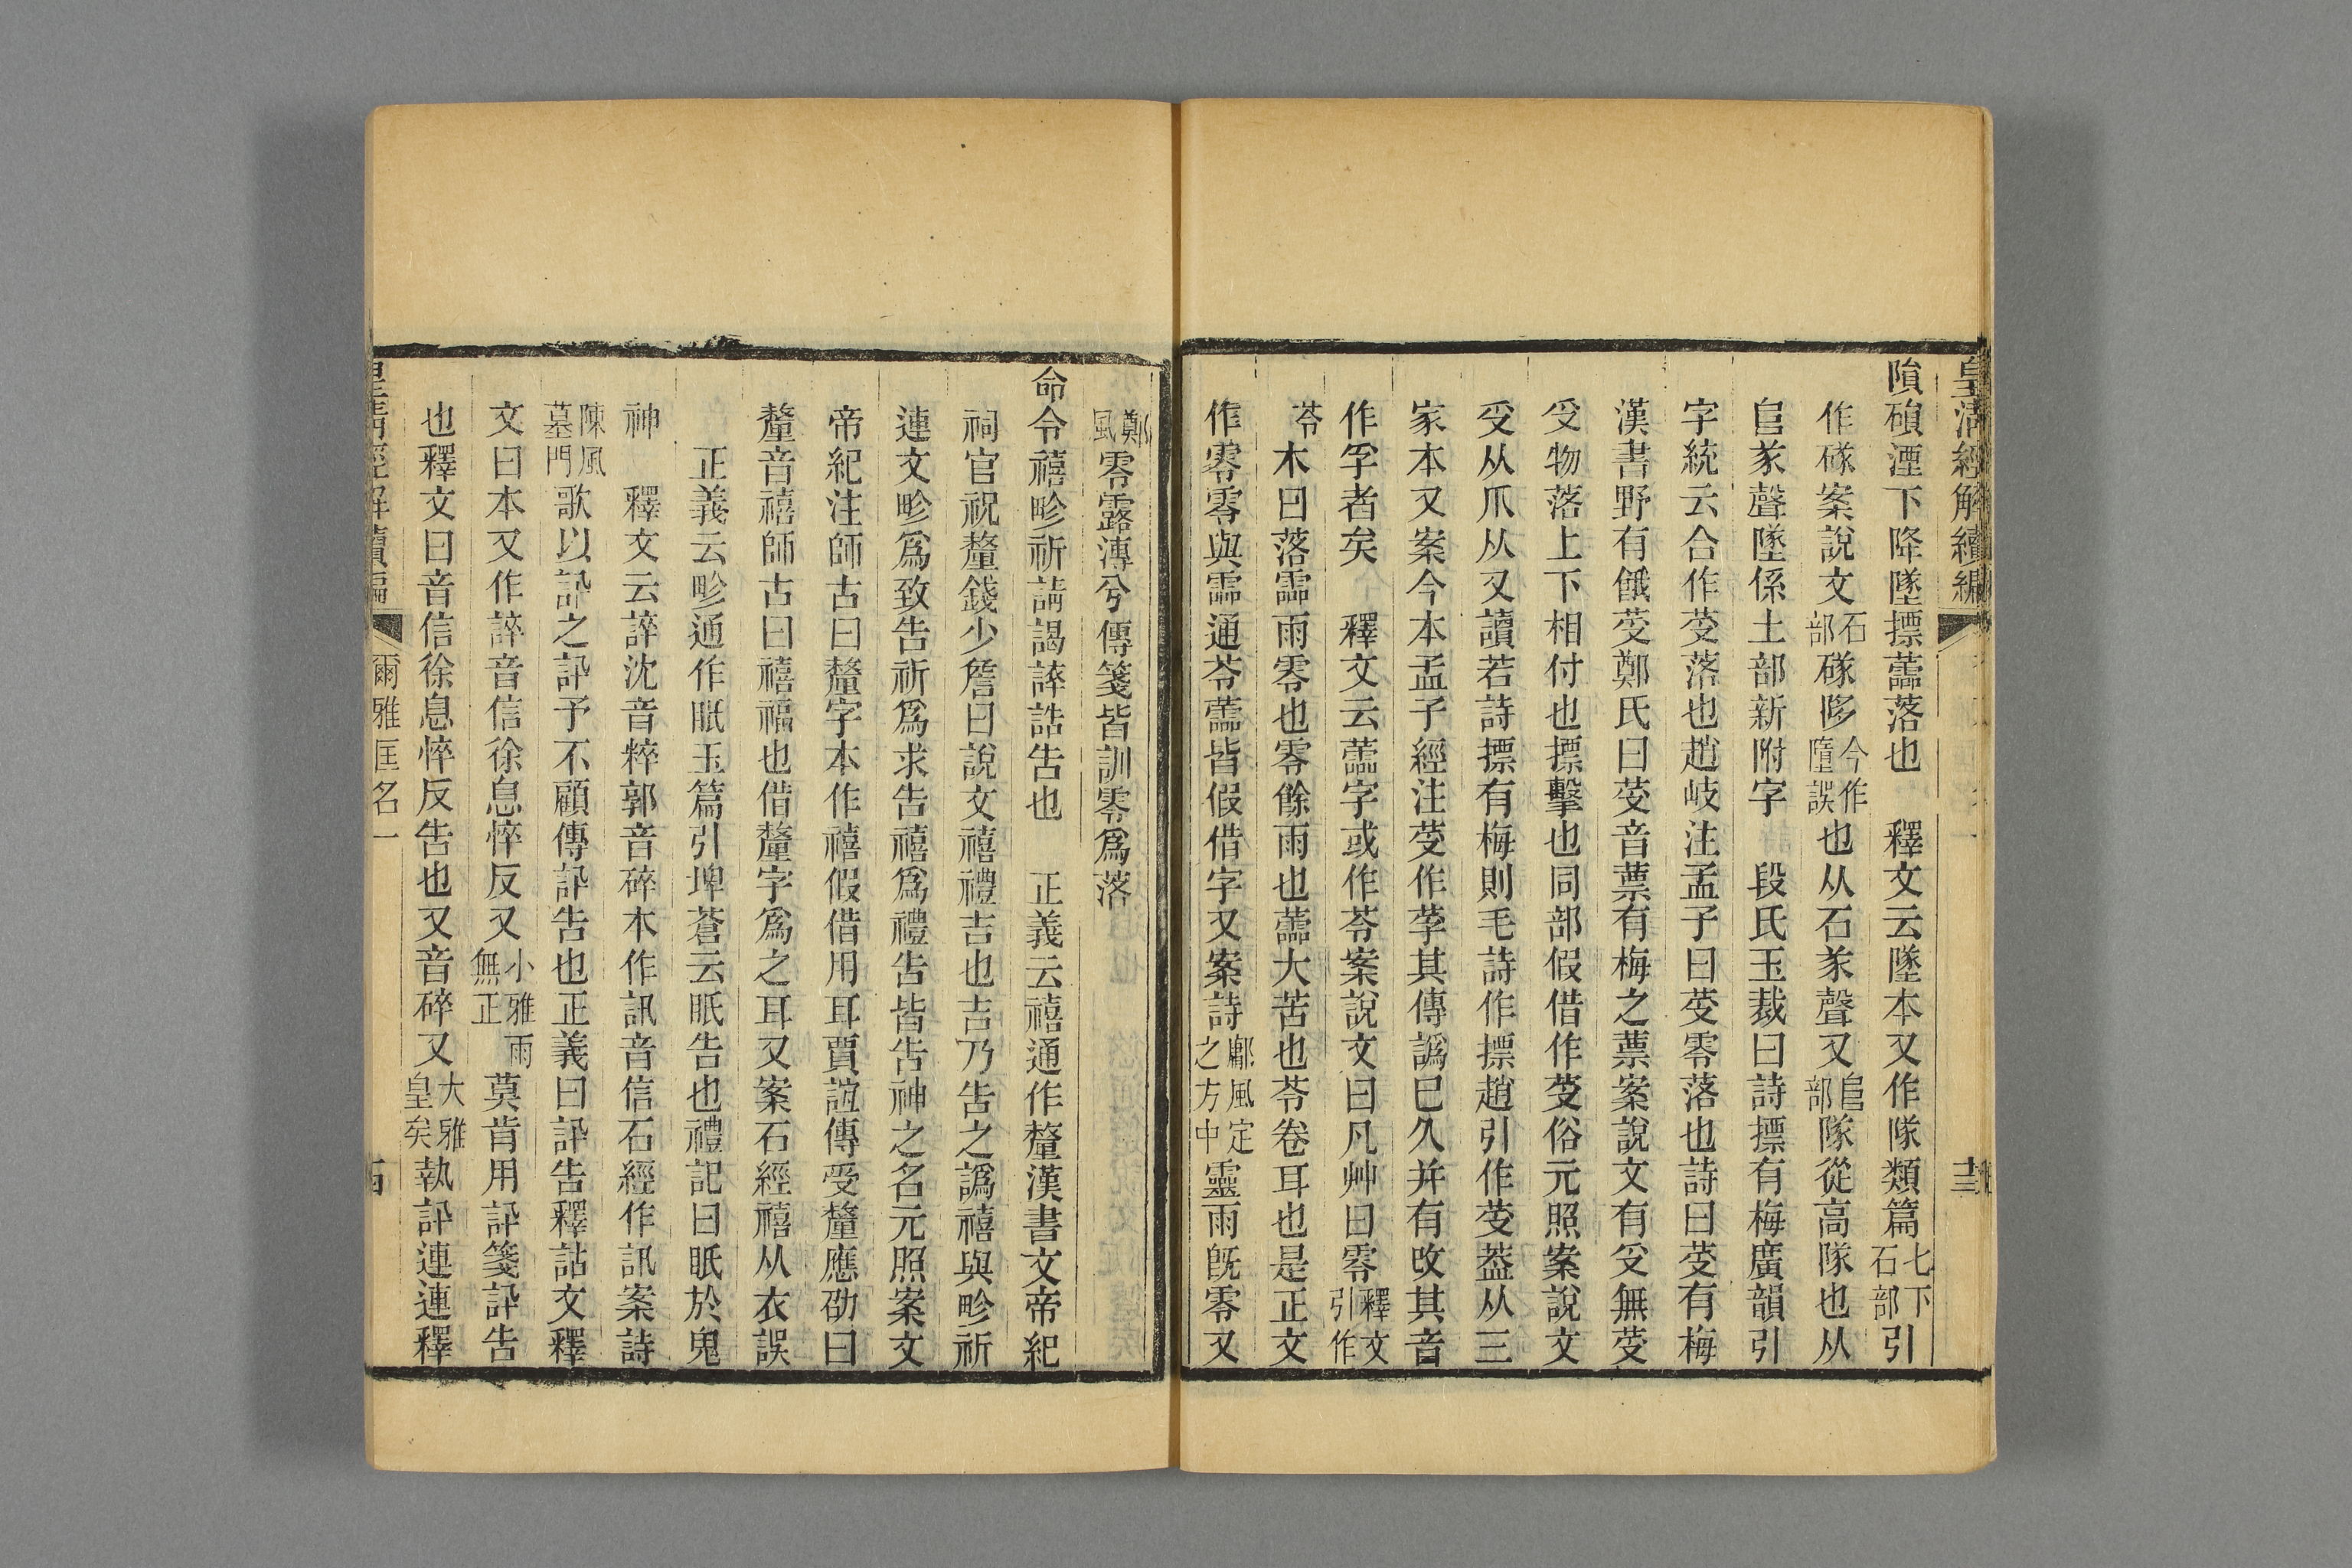 皇清經解續編
隕磒湮下降墜摽蘦落也 釋文云墜本又作隊類篇七下石部引
作䃍案說文石部䃍陊今作墮誤作也从石㒸聲又𨸏部隊從高隊也从
𨸏㒸聲墜係土部新附字 段氏玉裁曰詩摽有梅廣韻引
字統云合作芆落也趙岐注孟子曰芆零落也詩曰芆有梅
漢書野有餓芆鄭氏曰芆音蔈有梅之蔈案說文有𠬪無芆
𠬪物落上下相付也摽擊也同部假借作芆俗元照案說文
𠬪从爪从又讀若詩摽有梅則毛詩作摽趙引作芆葢从三
家本又案今本孟子經注芆作莩其傳譌巳久并有改其音
作孚者矣 釋文云蘦字或作苓案說文曰凡艸曰零釋文引作
苓木曰落霝雨零也零餘雨也蘦大苦也苓卷耳也是正文
作零零與霝通苓蘦皆假借字又案詩鄘風定之方中靈雨旣零又
鄭風零露漙兮傳箋皆訓零爲落
命令禧畛祈請謁誶誥告也 正義云禧通作釐漢書文帝紀
祠官祝釐錢少詹曰說文禧禮吉也吉乃告之譌禧與畛祈
連文畛爲致告祈爲求告禧爲禮告皆告神之名元照案文
帝紀注師古曰釐字本作禧假借用耳賈誼傳受釐應劭曰
釐音禧師古曰禧福也借釐字爲之耳又案石經禧从衣誤
正義云畛通作眡玉篇引埤蒼云眂告也禮記曰眡於鬼
神 釋文云誶沈音粹郭音碎木作訊音信石經作訊案詩
陳風墓門歌以訙之訙予不顧傳訙告也正義曰訙告釋詁文釋
文曰本又作誶音信徐息悴反又小雅雨無正莫肯用訙箋訙告
也釋文曰音信徐息悴反告也又音碎又大雅皇矣執訙連連釋
皇清經解續編
爾雅匡名一